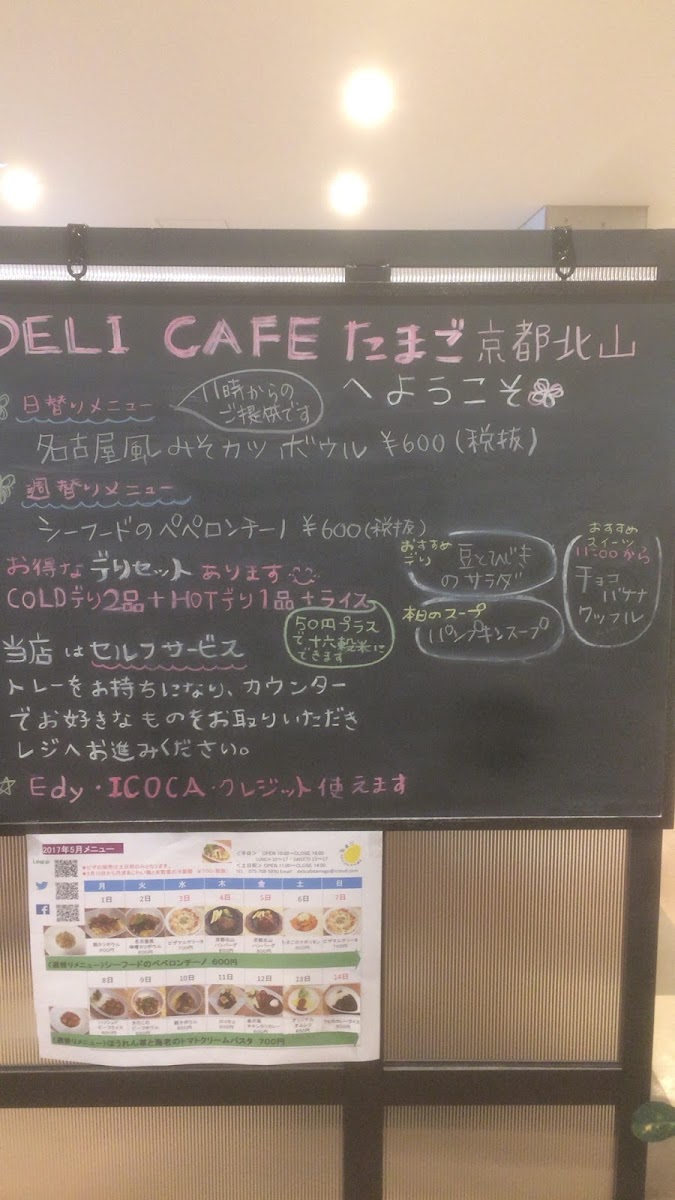 DELI CAFE たまご 京都北山
へようこそ
日替りメニュー
11時からの
ご提供です
名古屋風みそカツ ボウル ¥600(税抜)
週替りメニュー
シーフードのペペロンチーノ ¥600(税抜)
お得な デリセット あります
COLDデリ2品+HOTデリ1品+ライス
50円プラス
で十六穀米に
できます
おすすめ
デリ
豆とひじき
のサラダ
本日のスープ
パンプキンスープ
おすすめ
スイーツ
11:00から
チョコ
バナナ
ワッフル
当店 は セルフサービス
トレーをお持ちになり、カウンター
でお好きなものをお取りいただき
レジへお進みください。
☆ Edy・ICOCA・クレジット使えます
2017年5月メニュー
月 火 水 木 金 土 日
1日 2日 3日 4日 5日 6日 7日
(週替りメニュー)シーフードのペペロンチーノ 600円
8日 9日 10日 11日 12日 13日 14日
(週替りメニュー)ほうれん草と海老のトマトクリームパスタ 700円